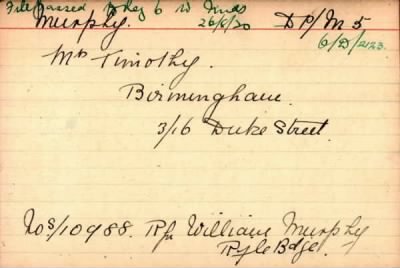 File passed to Reg 6 W Inds
26/6/20
Murphy. D P/M 5
6/D/2123.
Mr Timothy.
Birmingham.
3/16 Duke Street.
No S/10988. Rfn William Murphy
Rifle Bdge.